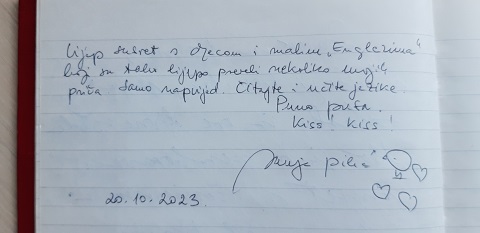 Lijep susret s djecom i malim „Englezima“
koji su tako lijepo preveli nekoliko mojih
priča. Samo naprijed. Čitajte i učite jezike.
Puno pusa.
Kiss! Kiss!
Sanja Pilić
20.10.2023.